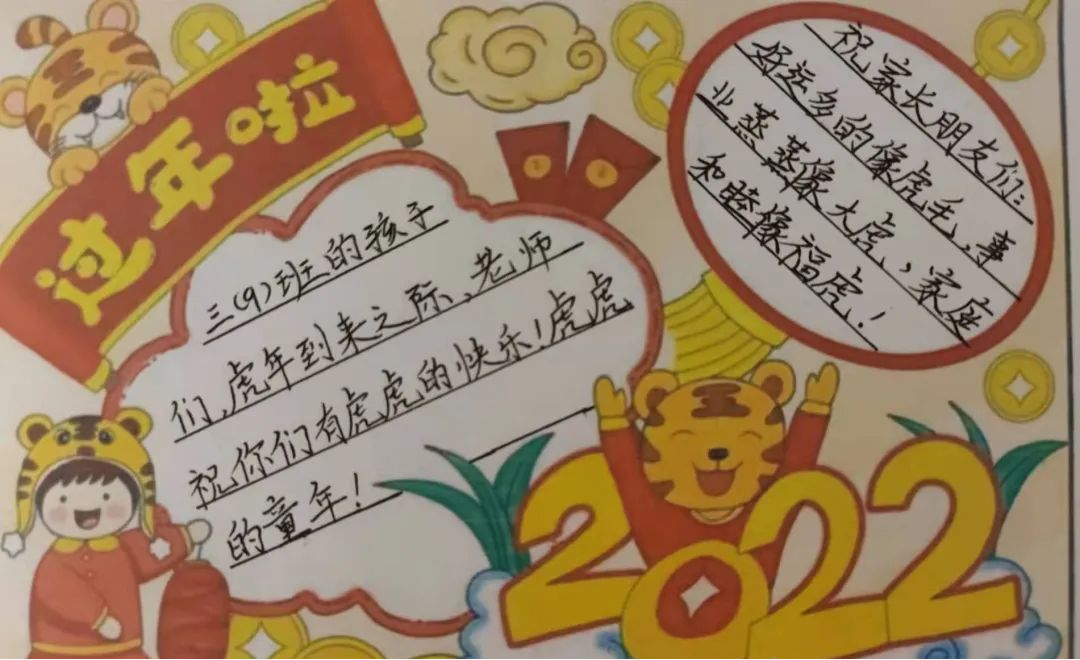 过年啦
三(9)班的孩子
们,虎年到来之际,老师
祝你们有虎虎的快乐!虎虎
的童年!
祝家长朋友们:
好运多的像虎毛,事
业蒸蒸像大虎,家庭
和睦像福虎!
2022